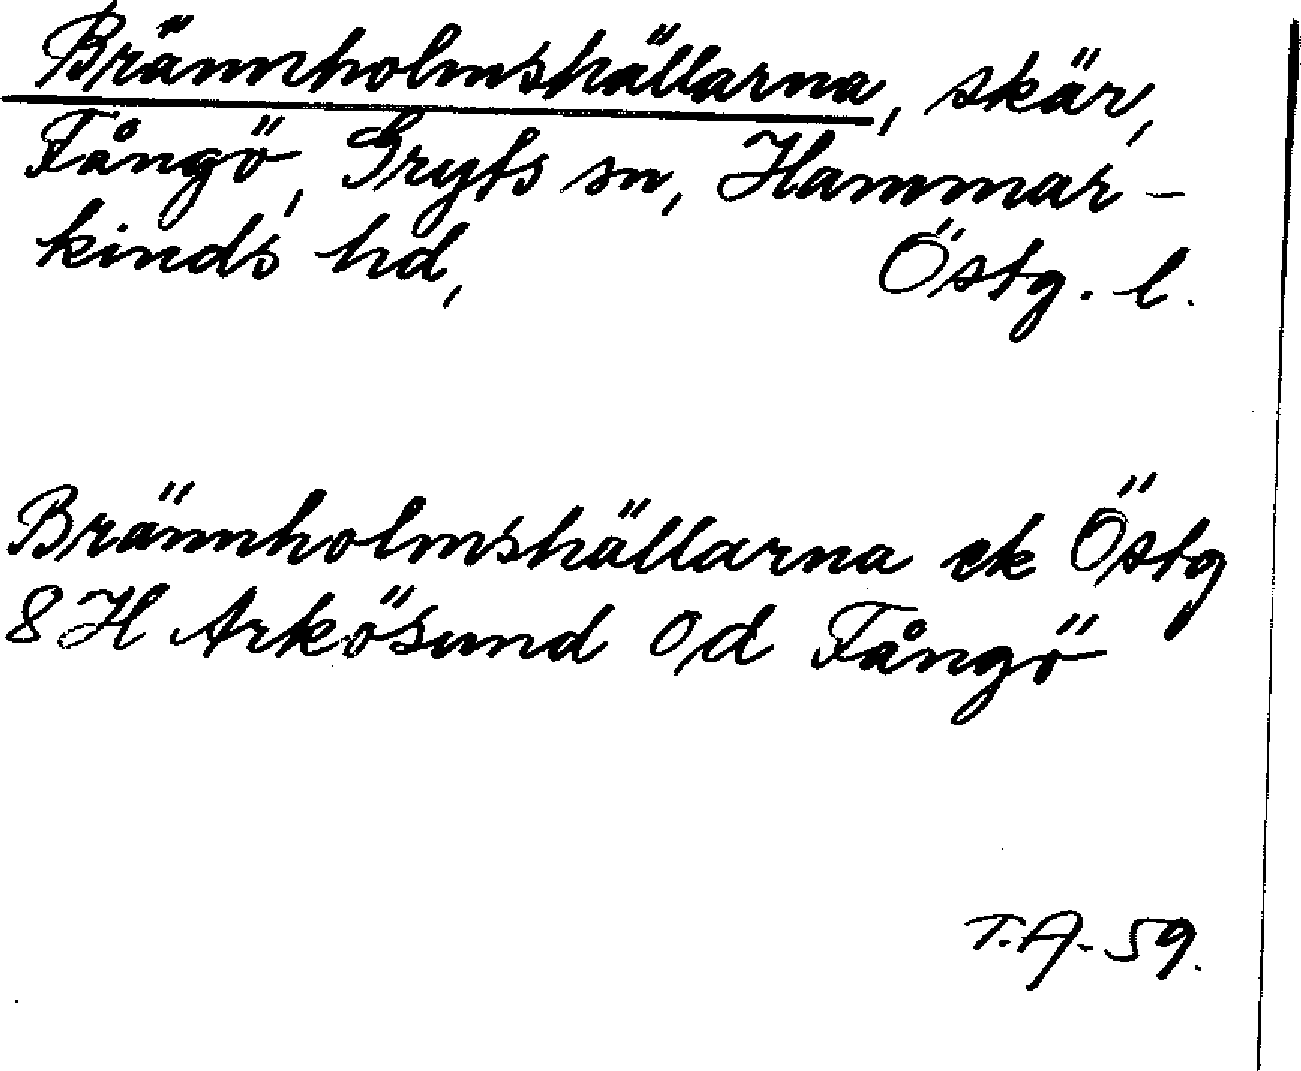 Brännholmshällarna, skär,
Fångö, Gryts sn, Hammar-
kinds hd, Östg. l.
Brännholmshällarna ek Östg
8H Arkösund 0,d Fångö
T.A. 59.